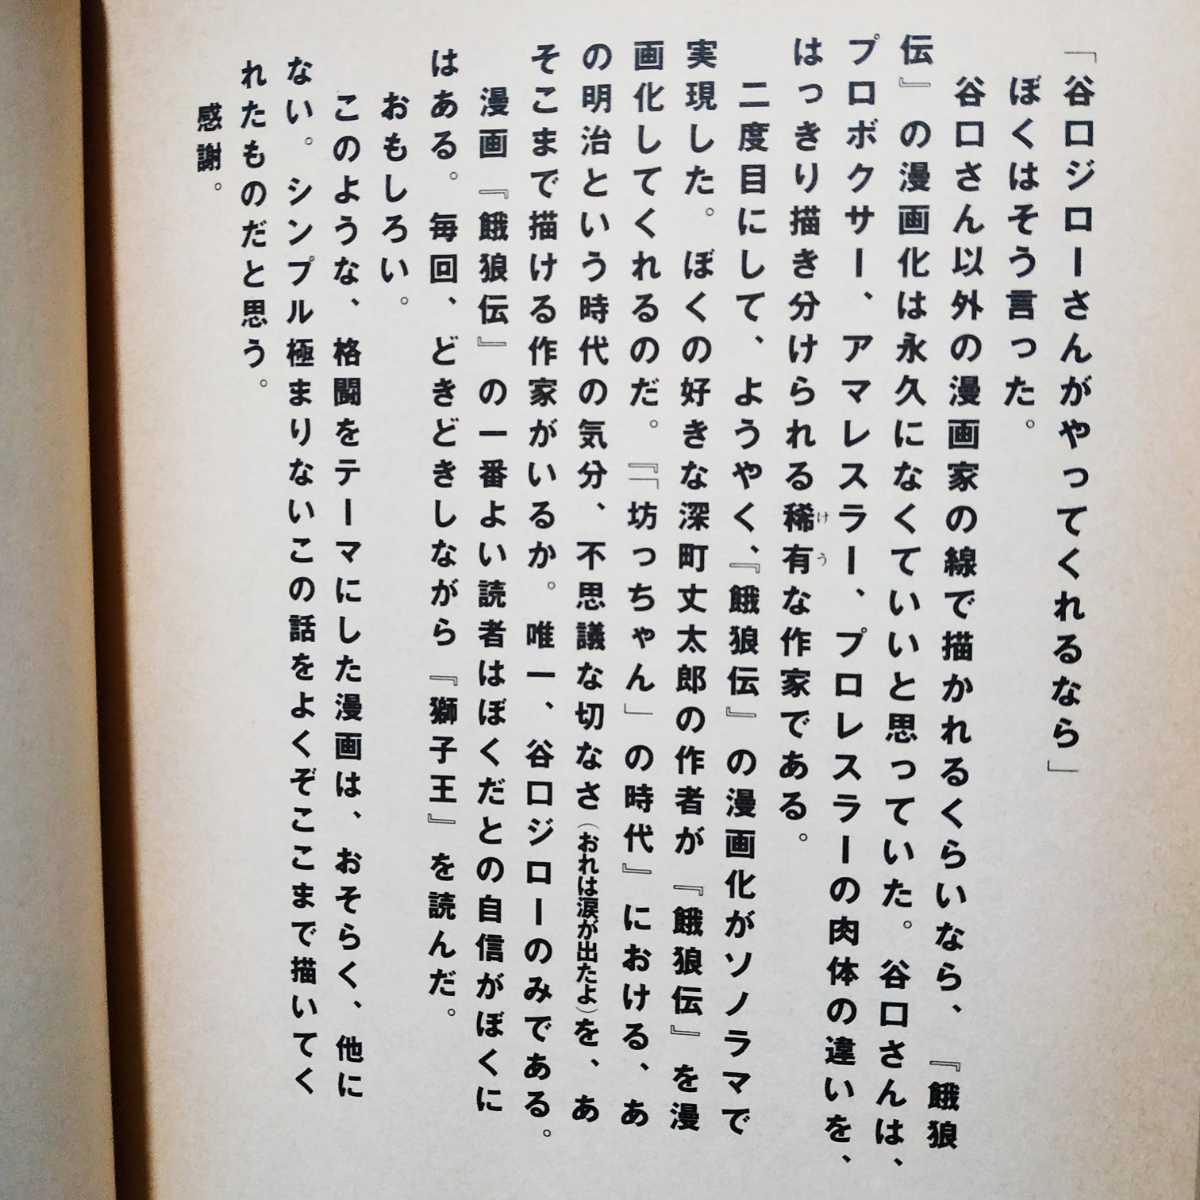 「谷口ジローさんがやってくれるなら」
ぼくはそう言った。
谷口さん以外の漫画家の線で描かれるくらいなら、『餓狼
伝』の漫画化は永久になくていいと思っていた。谷口さんは、
プロボクサー、アマレスラー、プロレスラーの肉体の違いを、
はっきり描き分けられる稀有な作家である。
けう
二度目にして、ようやく、『餓狼伝』の漫画化がソノラマで
実現した。ぼくの好きな深町丈太郎の作者が『餓狼伝』を漫
画化してくれるのだ。『「坊っちゃん」の時代』における、あ
の明治という時代の気分、不思議な切なさ（おれは涙が出たよ）を、あ
そこまで描ける作家がいるか。唯一、谷口ジローのみである。
漫画『餓狼伝』の一番よい読者はぼくだとの自信がぼくに
はある。毎回、どきどきしながら『獅子王』を読んだ。
おもしろい。
このような、格闘をテーマにした漫画は、おそらく、他に
ない。シンプル極まりないこの話をよくぞここまで描いてく
れたものだと思う。
感謝。